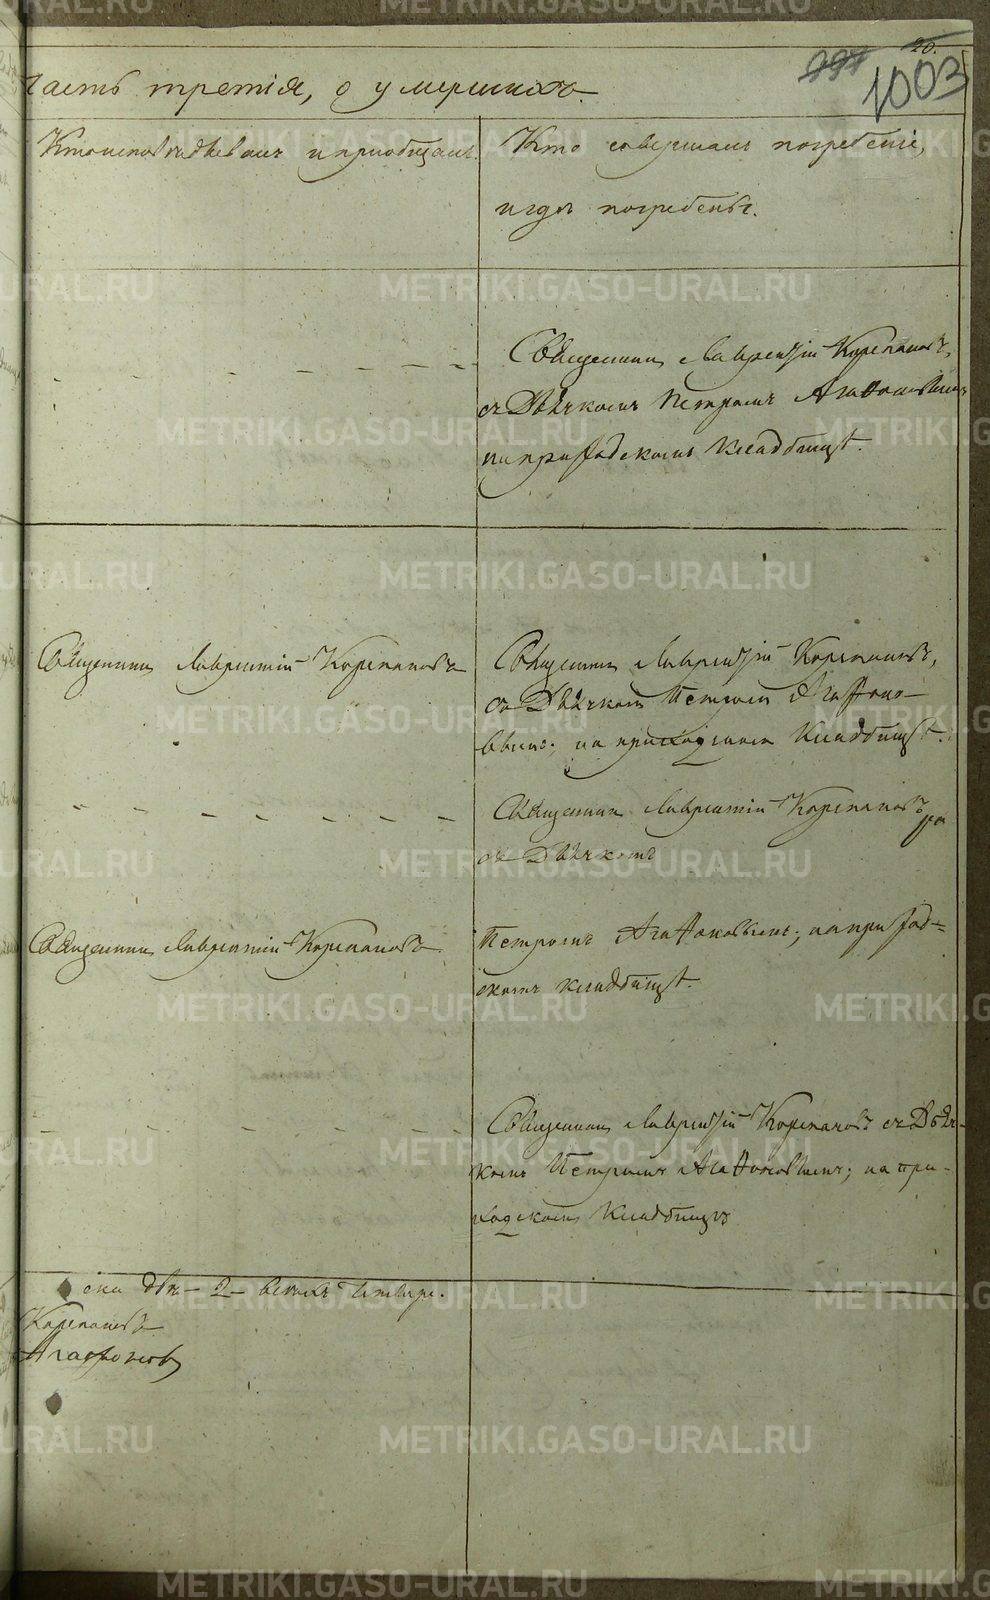 20.
997
1003
часть третія, о умершихъ.
Кто исповѣдывалъ и приобщалъ.
Кто совершалъ погребеніе,
и гдѣ погребены.
Священникъ Лаврентій Корепановъ,
съ Дьячкомъ Петромъ Агафоновымъ
на приходскомъ кладбищѣ.
Священникъ Лаврентій Корепановъ
Священникъ Лаврентій Корепановъ,
съ Дьячкомъ Петромъ Агафоно-
вымъ; на приходскомъ кладбищѣ.
Священникъ Лаврентій Корепановъ
съ Дьячкомъ
Священникъ Лаврентій Корепановъ
Петромъ Агафоновымъ; на приход-
скомъ кладбищѣ.
Священникъ Лаврентій Корепановъ съ Дьяч-
комъ Петромъ Агафоновымъ; на при-
ходскомъ кладбищѣ
2
Корепановъ
Агафоновъ
METRIKI.GASO-URAL.RU